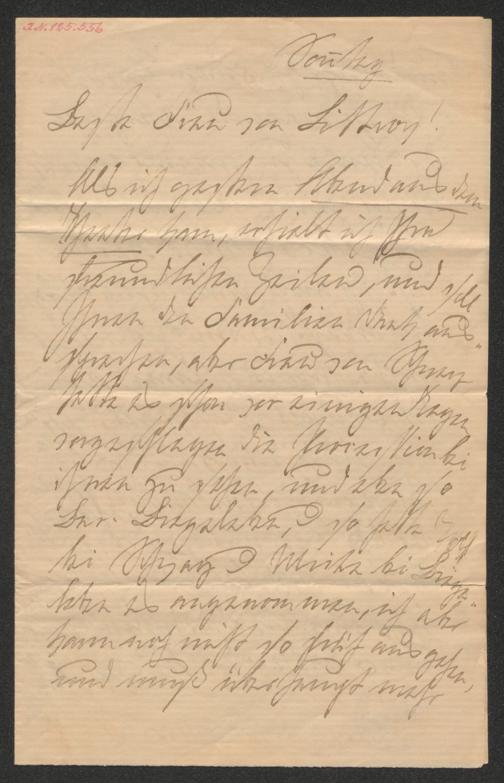 I.N. 125.556
Sonntag
Beste Frau von Littrow!
Als ich gestern Abend aus dem
Theater kam, erhielt ich Ihre
freundlichen Zeilen, und soll
Ihnen den Familien Dank aus-
sprechen, aber Frau von
hatte es schon vor einigen Tagen
vorgeschlagen die Procession bei
ihnen zu sehen, und eben so
Bar.
bei
es angenommen, ich aber
kann noch nicht so früh ausgehen,
und muß überhaupt mehr